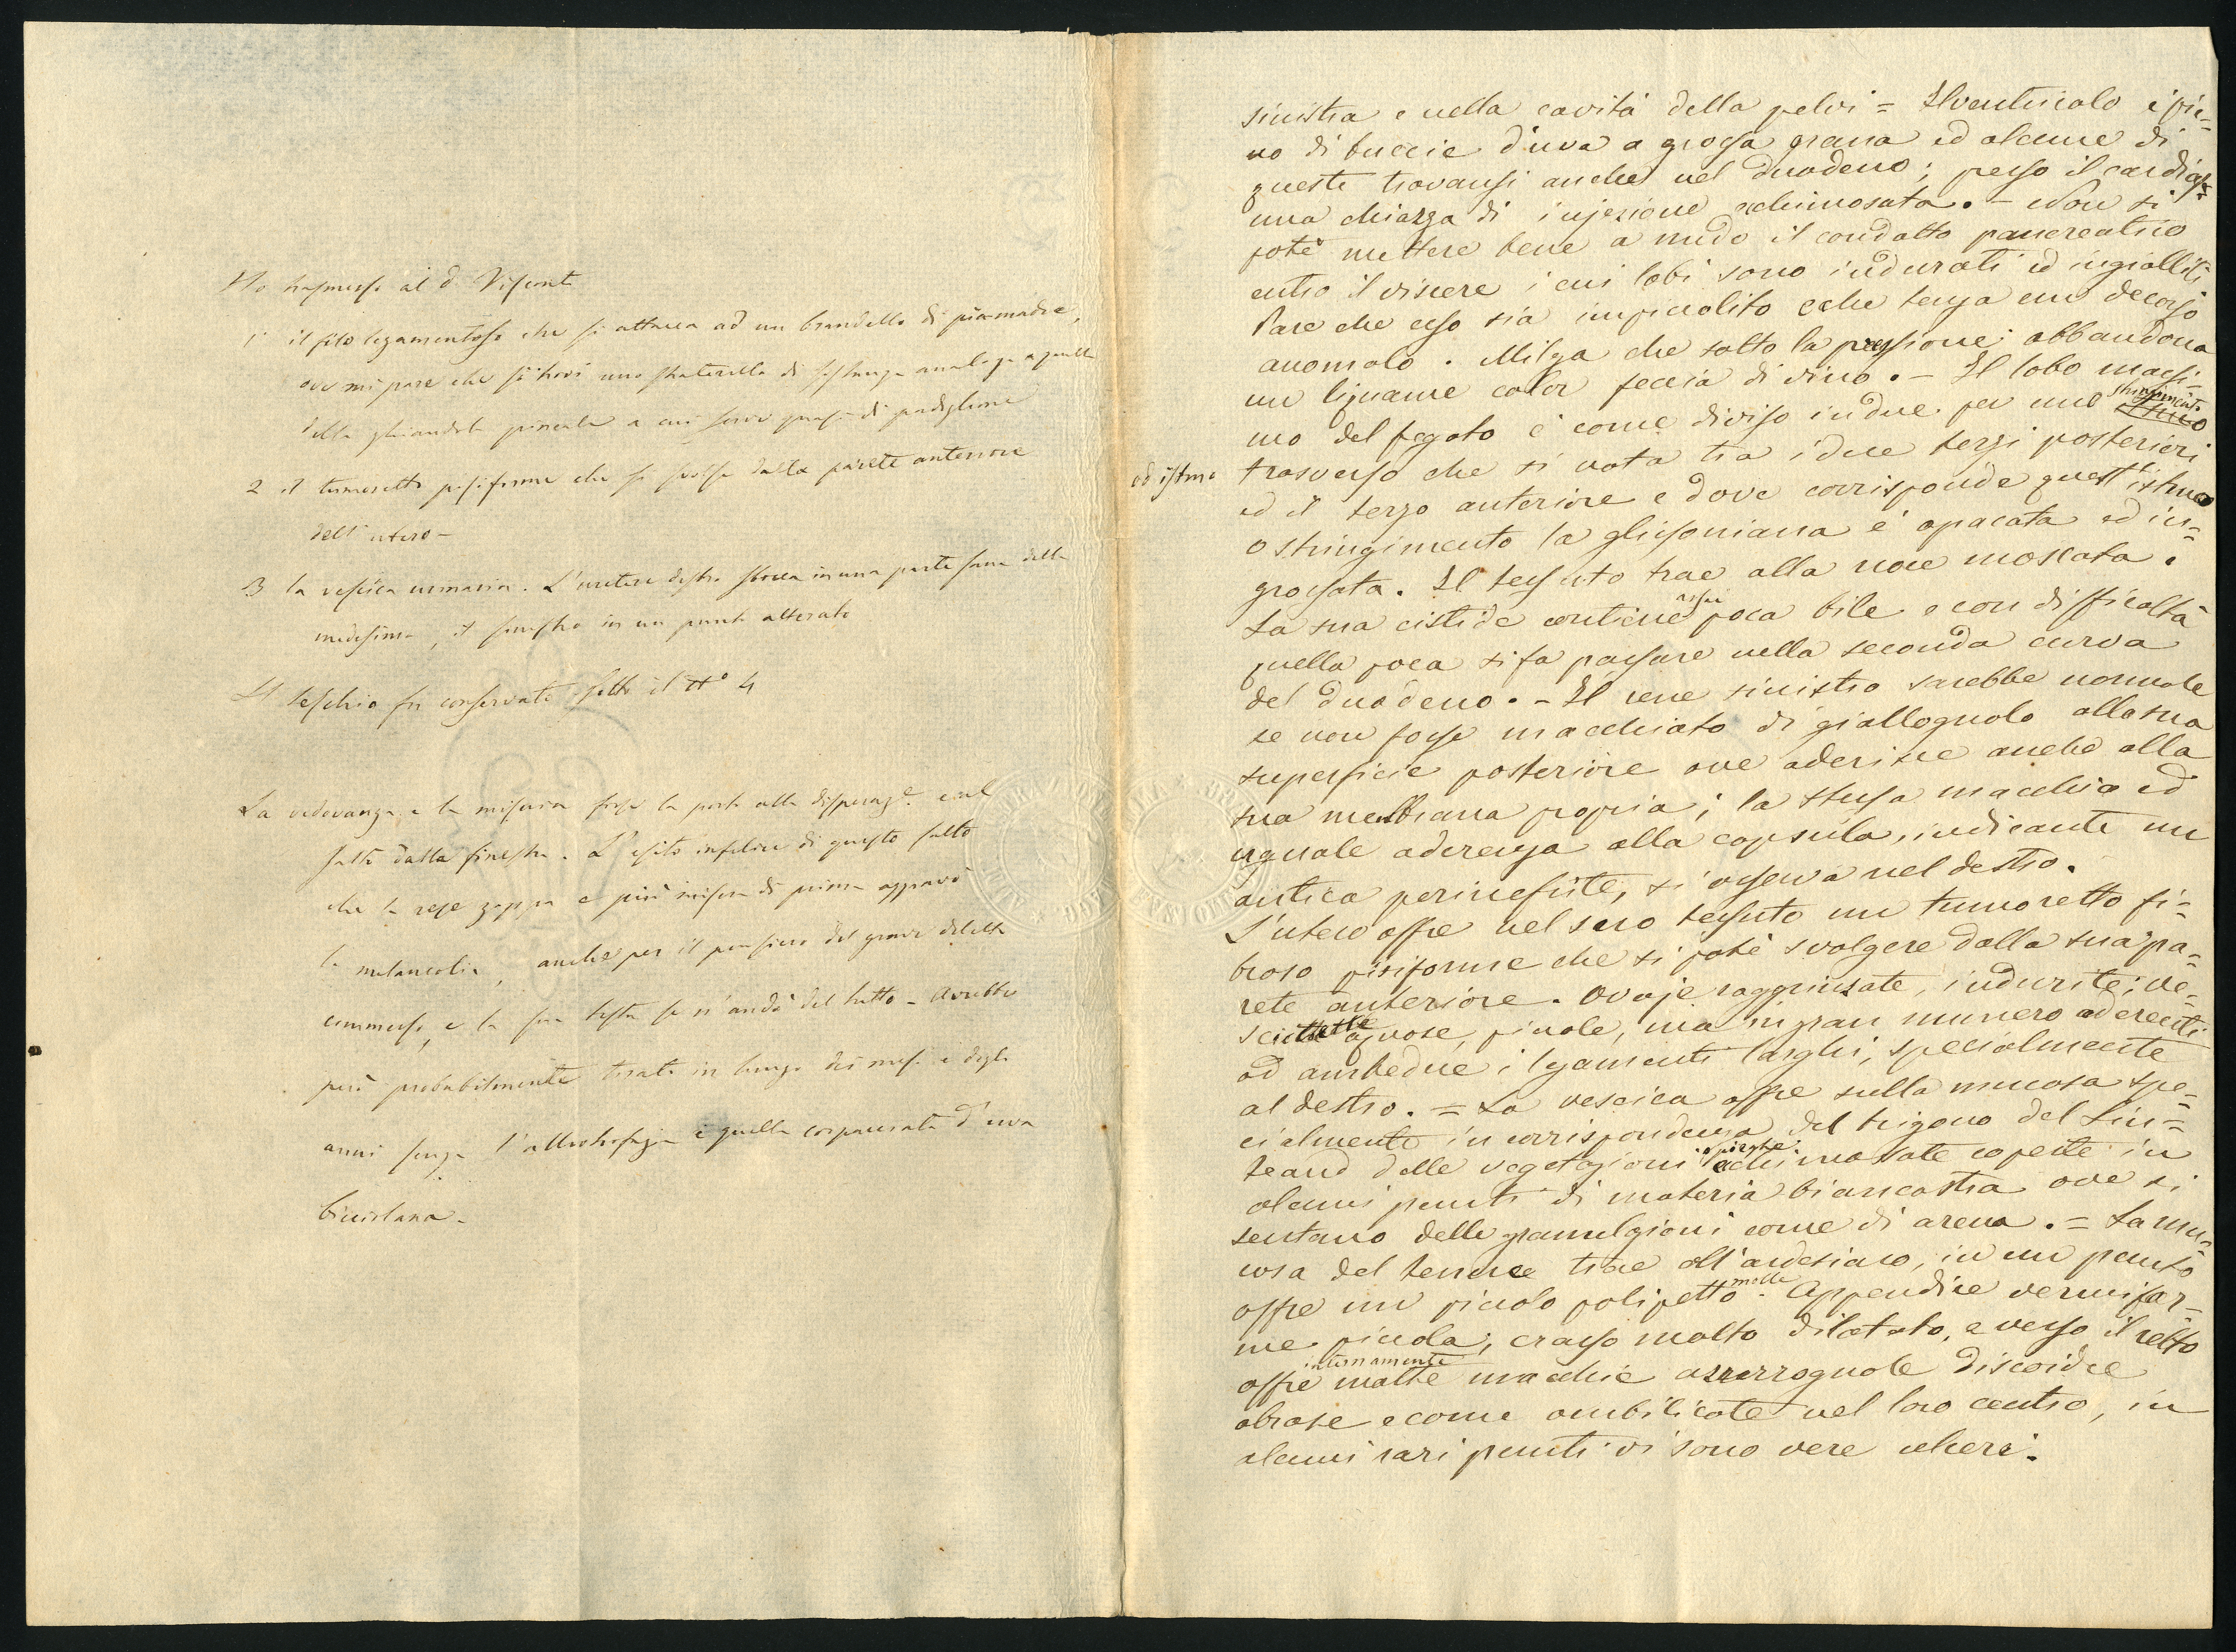 Ho trasmesso al d. Visconti
1° il filo legamentoso che si attacca ad un brandello di pia-madre,
ove mi pare che si trovi uno straterello di sostanza analoga a quella
della ghiandola pineale a cui serve quasi di padiglione
2 il tumoretto pisiforme che si svolse dalla parete anteriore
dell'utero -
3 la vescica urinaria. L'uretere destro sbocca in una parte sana della
medesima, il sinistro in un punto alterato
Il teschio fu conservato sotto il N° 4
La vedovanza e la miseria forse la portò alla disperaz.e e al
salto dalla finestra. L'esito infelice di questo salto
che la rese zoppa e più misera di prima aggravò
la melancolia, anche per il pensiero del grave delitto
commesso, e la sua testa se n'andò del tutto - Avrebbe
però probabilmente tirato in lungo dei mesi e degli
anni senza l'allotriofagia e quella corpacciata d'uva
sinistra e nella cavità della pelvi = Il ventricolo è pie=
no di buccie d'uva a grossa grana ed alcune di
queste trovansi anche nel duodeno; presso il cardias
una chiazza di injezione echimosata. - Non si
potè mettere bene a nudo il condotto pancreatico
entro il viscere i cui lobi sono indurati ed ingialliti
Pare che esso sia impicciolito e che tenga un decorso
anomalo. Milza che sotto la pressione abbandona
un liquame color feccia di vino. - Il lobo massi=
mo del fegato è come diviso in due per uno stringimento
ed istmo trasverso che si nota tra i due terzi posteriori
ed il terzo anteriore e dove corrisponde quest'istmo
o stringimento la glissoniana è opacata ed in=
grossata. Il tessuto trae alla noce moscata.
La sua cistide contiene assai poca bile e con difficoltà
quella poca si fa passare nella seconda curva
del duodeno. - Il rene sinistro sarebbe normale
se non fosse macchiato di giallognolo alla sua
superficie posteriore ove aderisce anche alla
sua membrana propria; la stessa macchia ed
uguale aderenza alla capsula, indicante un
antica perinefrite, si osserva nel destro.
L'utero offre nel suo tessuto un tumoretto fi=
broso pisiforme che si potè svolgere dalla sua pa=
rete anteriore. Ovaje raggrinzate, indurite; ve=
scichette acquose, piccole, ma in gran numero aderenti
ad ambedue i legamenti larghi, specialmente
al destro. = La vescica offre sulla mucosa spe=
cialmente in corrispondenza del trigono del Lieu=
teaud delle vegetazioni echimosate coperte in
alcuni punti di materia biancastra ove si
sentano delle granulazioni come di arena. = La mu=
cosa del tenue trae all'ardesiaco, in un punto
offre un piccolo polipetto molle. Appendice vermifor=
me piccola, crasso molto dilatato, e verso il retto
offre internamente molte macchie azzurrognole discoidee
abrase e come ombilicate nel loro centro, in
alcuni rari punti vi sono vere ulceri.